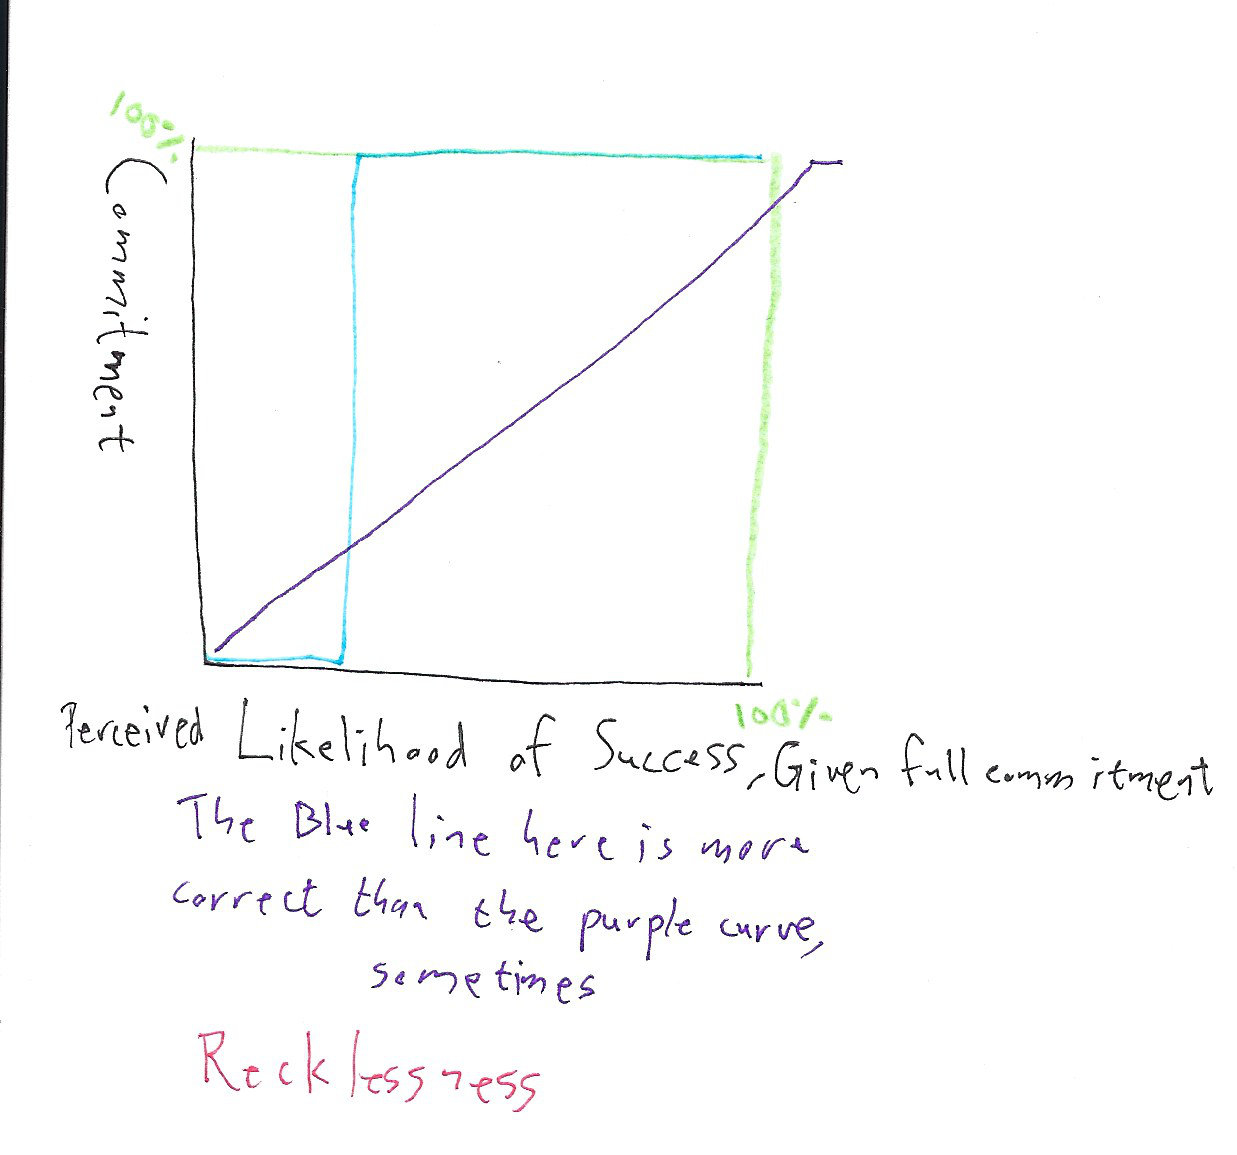 100%
Commitment
100%
Perceived Likelihood of Success, Given full commitment
The Blue line here is more
correct than the purple curve,
sometimes
Recklessness